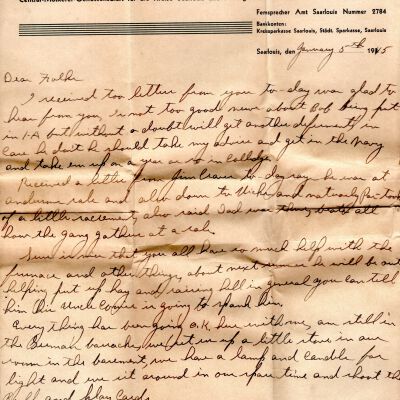 Fernsprecher Amt Saarlouis Nummer 2784
Bankkonten:
Kreissparkasse Saarlouis, Städt. Sparkasse, Saarlouis
Saarlouis, den January 5th 1945
Dear Folks
I received too letter from you to-day was glad to
hear from you, is not too good news about Bob being put
in 1-A but without a doubt will get another deferment, in
case he don't he should take my advice and get in the Navy
and take em up on a year or so in college.
Received a letter from Jim to-day say he was at
sale and also down to and
of a little excitement, also said Dad was there, all
how the gang gather at a sale.
me that you all have so much help with the
furnace and other things, about next summer he will be out
helping put up hay and raising hell in general you can tell
him his Uncle is going to spank him.
Every thing has been going O.K. here with me, am still in
the German barracks, we set up a little stove in our
room in the basement, we have a lamp and candle for
light and we sit around in our spare time and shoot the
Bull and play cards